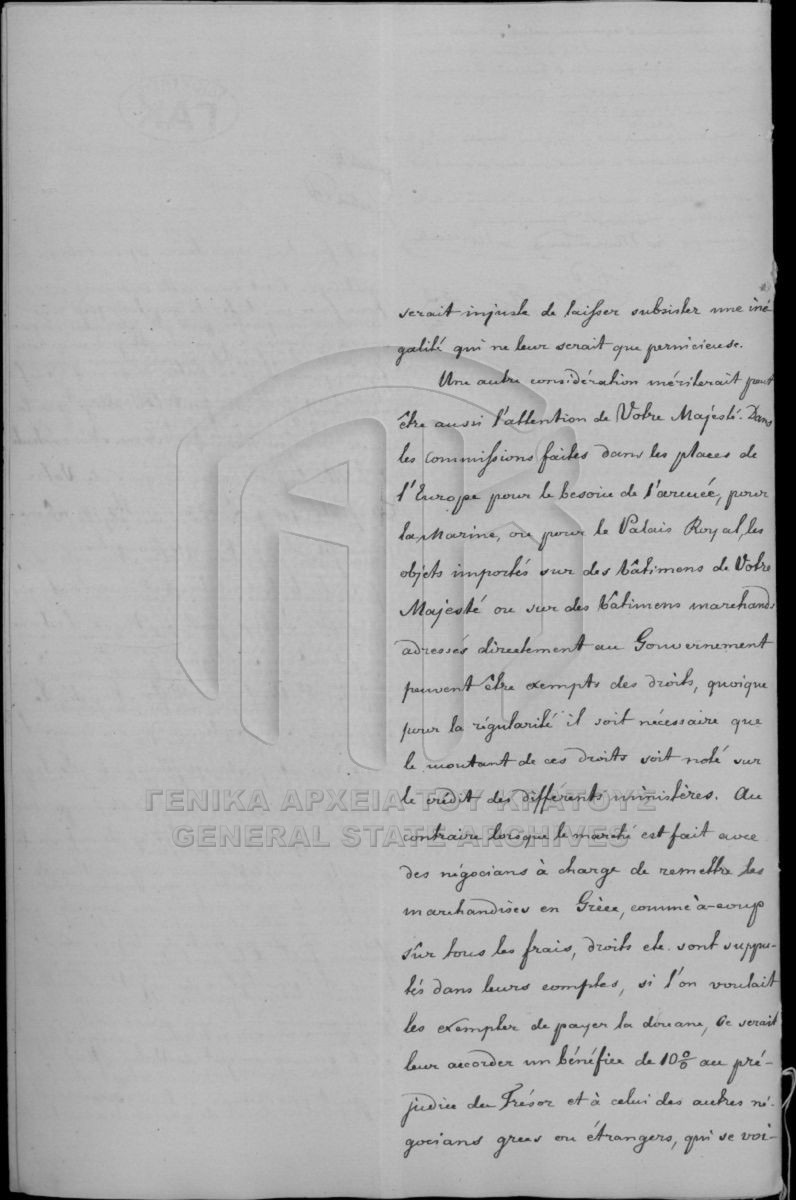 serait injuste de laisser subsister une iné
galité qui ne leur serait que pernicieuse.
Une autre considération mériterait peut
être aussi l'attention de Votre Majesté. Dans
les commissions faites dans les places de
l'Europe pour le besoin de l'armée, pour
la Marine, ou pour le Palais Royal, les
objets importés sur des bâtimens de Votre
Majesté ou sur des bâtimens marchands
adressés directement au Gouvernement
peuvent être exempts des droits, quoique
pour la régularité il soit nécessaire que
le montant de ces droits soit noté sur
le crédit des différents ministères. Au
contraire lorsque le marché est fait avec
des négocians à charge de remettre les
marchandises en Grèce, comme à-coup
sûr tous les frais, droits etc. sont suppu-
tés dans leurs comptes, si l'on voulait
les exempter de payer la douane, ce serait
leur accorder un bénéfice de 10 % au pré-
judice du Trésor et à celui des autres né-
gocians grecs ou étrangers, qui se voi-
ΓΕΝΙΚΑ ΑΡΧΕΙΑ ΤΟΥ ΚΡΑΤΟΥΣ
GENERAL STATE ARCHIVES
ΓΑΚ